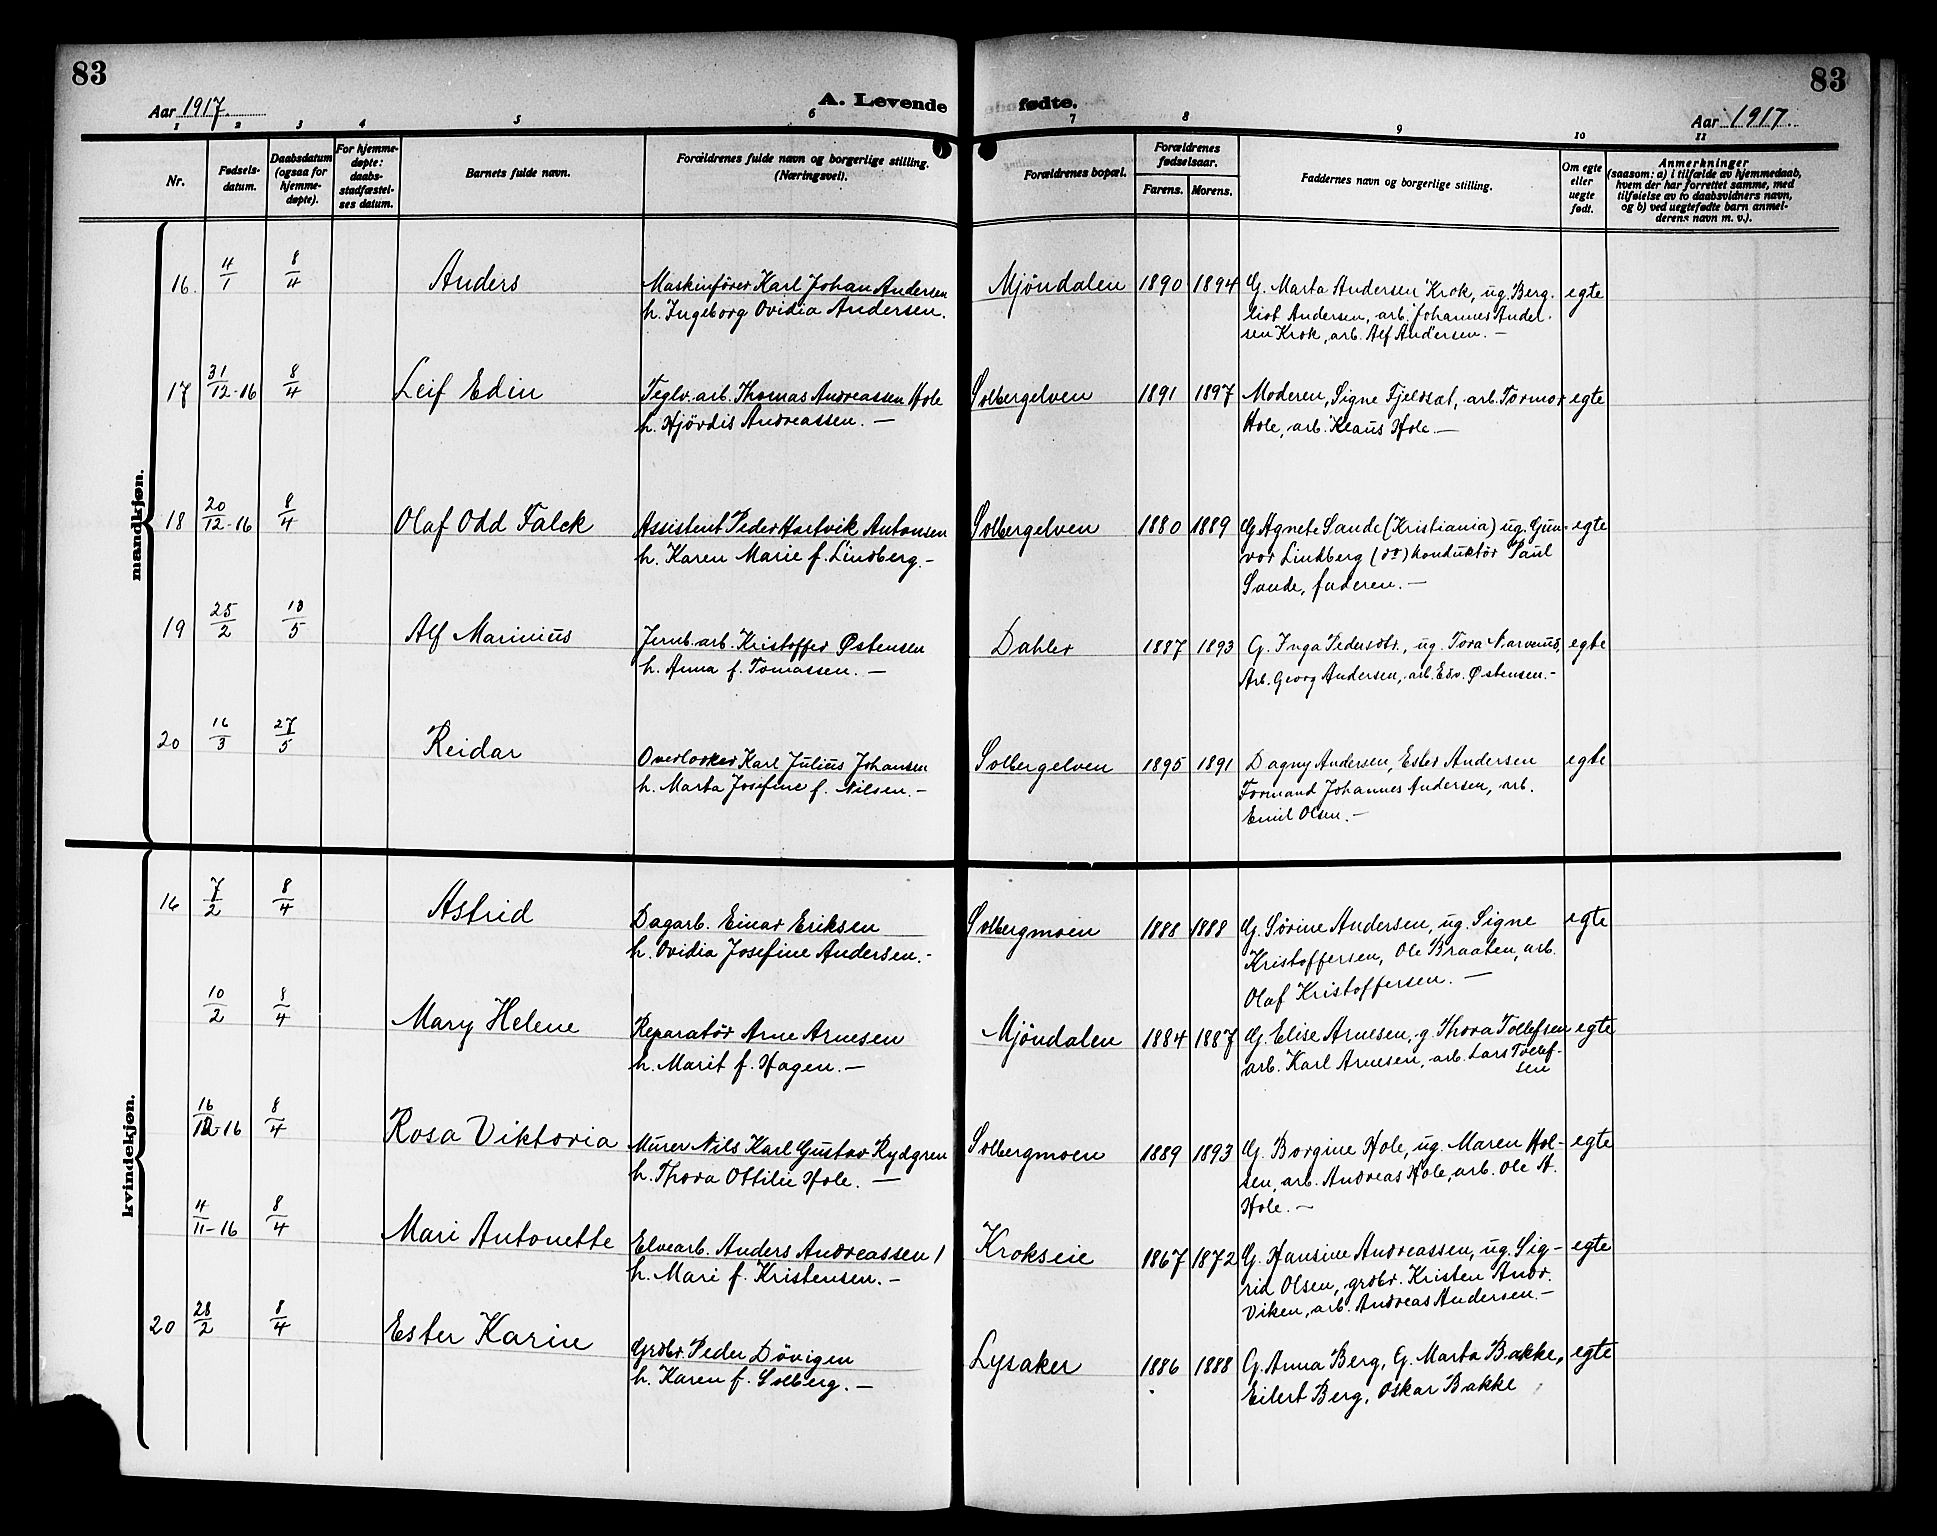 83
Aar 1917.
A. Levende
fødte.
Aar 1917.
83
1 2 3 4 5 6 7 8 9 10 11
Nr.
Fødsels-
datum.
Daabsdatum
(ogsaa for
hjemme-
døpte).
For hjemme-
døpte:
daabs-
stadfæstel-
ses datum.
Barnets fulde navn.
Forældrenes fulde navn og borgerlige stilling.
(Næringsvei).
Forældrenes bopæl.
Forældrenes
fødselsaar.
Farens. Morens.
Faddernes navn og borgerlige stilling.
Om egte
eller
uegte
født.
Anmerkninger
(saasom: a) i tilfælde av hjemmedaab,
hvem der har forrettet samme, med
tilføielse av to daabsvidners navn,
og b) ved uegtefødte barn anmel-
derens navn m. v.).
mandkjøn.
16. 4/1 8/4 Anders
Maskinfører Karl Johan Andersen
h. Ingeborg Ovidia Andersen.
Mjöndalen 1890 1894
G. Marta Andersen Krok, ug. Berg-
liot Andersen, arb. Johannes Ander-
sen Krok, arb. Alf Andersen. —
egte
17 31/12-16 8/4 Leif Edin
Teglv. arb. Thomas Andreassen Hole
h. Hjördis Andreassen. —
Solbergelven 1891 1897
Moderen, Signe Fjeldsæt, arb. Tormor
Hole, arb. Klaus Hole. —
egte
18 20/12-16 8/4 Olaf Odd Falck
Assistent Peder Hartvik Antonsen
h. Karen Marie f. Lindberg. -
Solbergelven 1880 1889
G Agnete Sande (Kristiania) ug. Gun-
vor Lindberg (do) konduktör Paul
Sande, faderen. —
egte
19 25/2 10/5 Alf Marinius
Jernb. arb. Kristoffer Østensen
h. Anna f. Tomassen. —
Dahler 1887 1893
G. Inga Pedersdtr., ug. Tora Narverud,
Arb. Georg Andersen, arb. Edv. Østensen. -
egte
20 16/3 27/5 Reidar
Overlooker Karl Julius Johansen
h. Marta Josefine f. Nilsen. -
Solbergelven 1895 1891
Dagny Andersen, Ester Andersen
Formand Johannes Andersen, arb.
Emil Olsen. —
egte
kvindekjøn.
16 7/2 8/4 Astrid
Dagarb. Einar Eriksen
h. Ovidia Josefine Andersen. -
Solbergmoen 1888 1888
G. Sörine Andersen, ug. Signe
Kristoffersen, Ole Braaten, arb.
Olaf Kristoffersen. —
egte
10/2 8/4 Mary Helene
Reparatør Arne Arnesen
h. Marit f. Hagen. —
Mjöndalen 1884 1887
G. Elise Arnesen, g Thora Tollefsen
arb. Karl Arnesen, arb. Lars Tollef-
sen
egte
16/12-16 8/4 Rosa Viktoria
Murer Nils Karl Gustav Rydgren
h. Thora Ottilie Hole. —
Solbergmoen 1889 1893
G. Borgine Hole, ug. Maren Hol-
sen, arb. Andreas Hole, arb. Ole A.
Hole. —
egte
4/11-16 8/4 Mari Antonette
Elvearb. Anders Andreassen /
h. Mari f. Kristensen. -
Krokseie 1867 1872
G. Hansine Andreassen, ug. Sig-
rid Olsen, grdbr. Kristen Andr.
Viken, arb. Andreas Andersen. —
egte
20 28/2 8/4 Ester Karin
Grdbr. Peder Dövigen
h. Karen f. Solberg. —
Lysaker 1886 1888
G. Anna Berg, G. Marta Bakke,
Eilert Berg, Oskar Bakke
egte